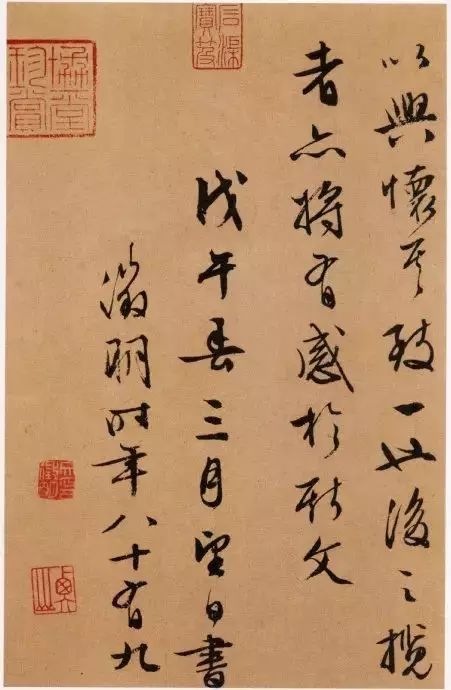 以興懷其致一也後之攬
者亦將有感於斯文
戊午春三月望日書
徵明時年八十有九